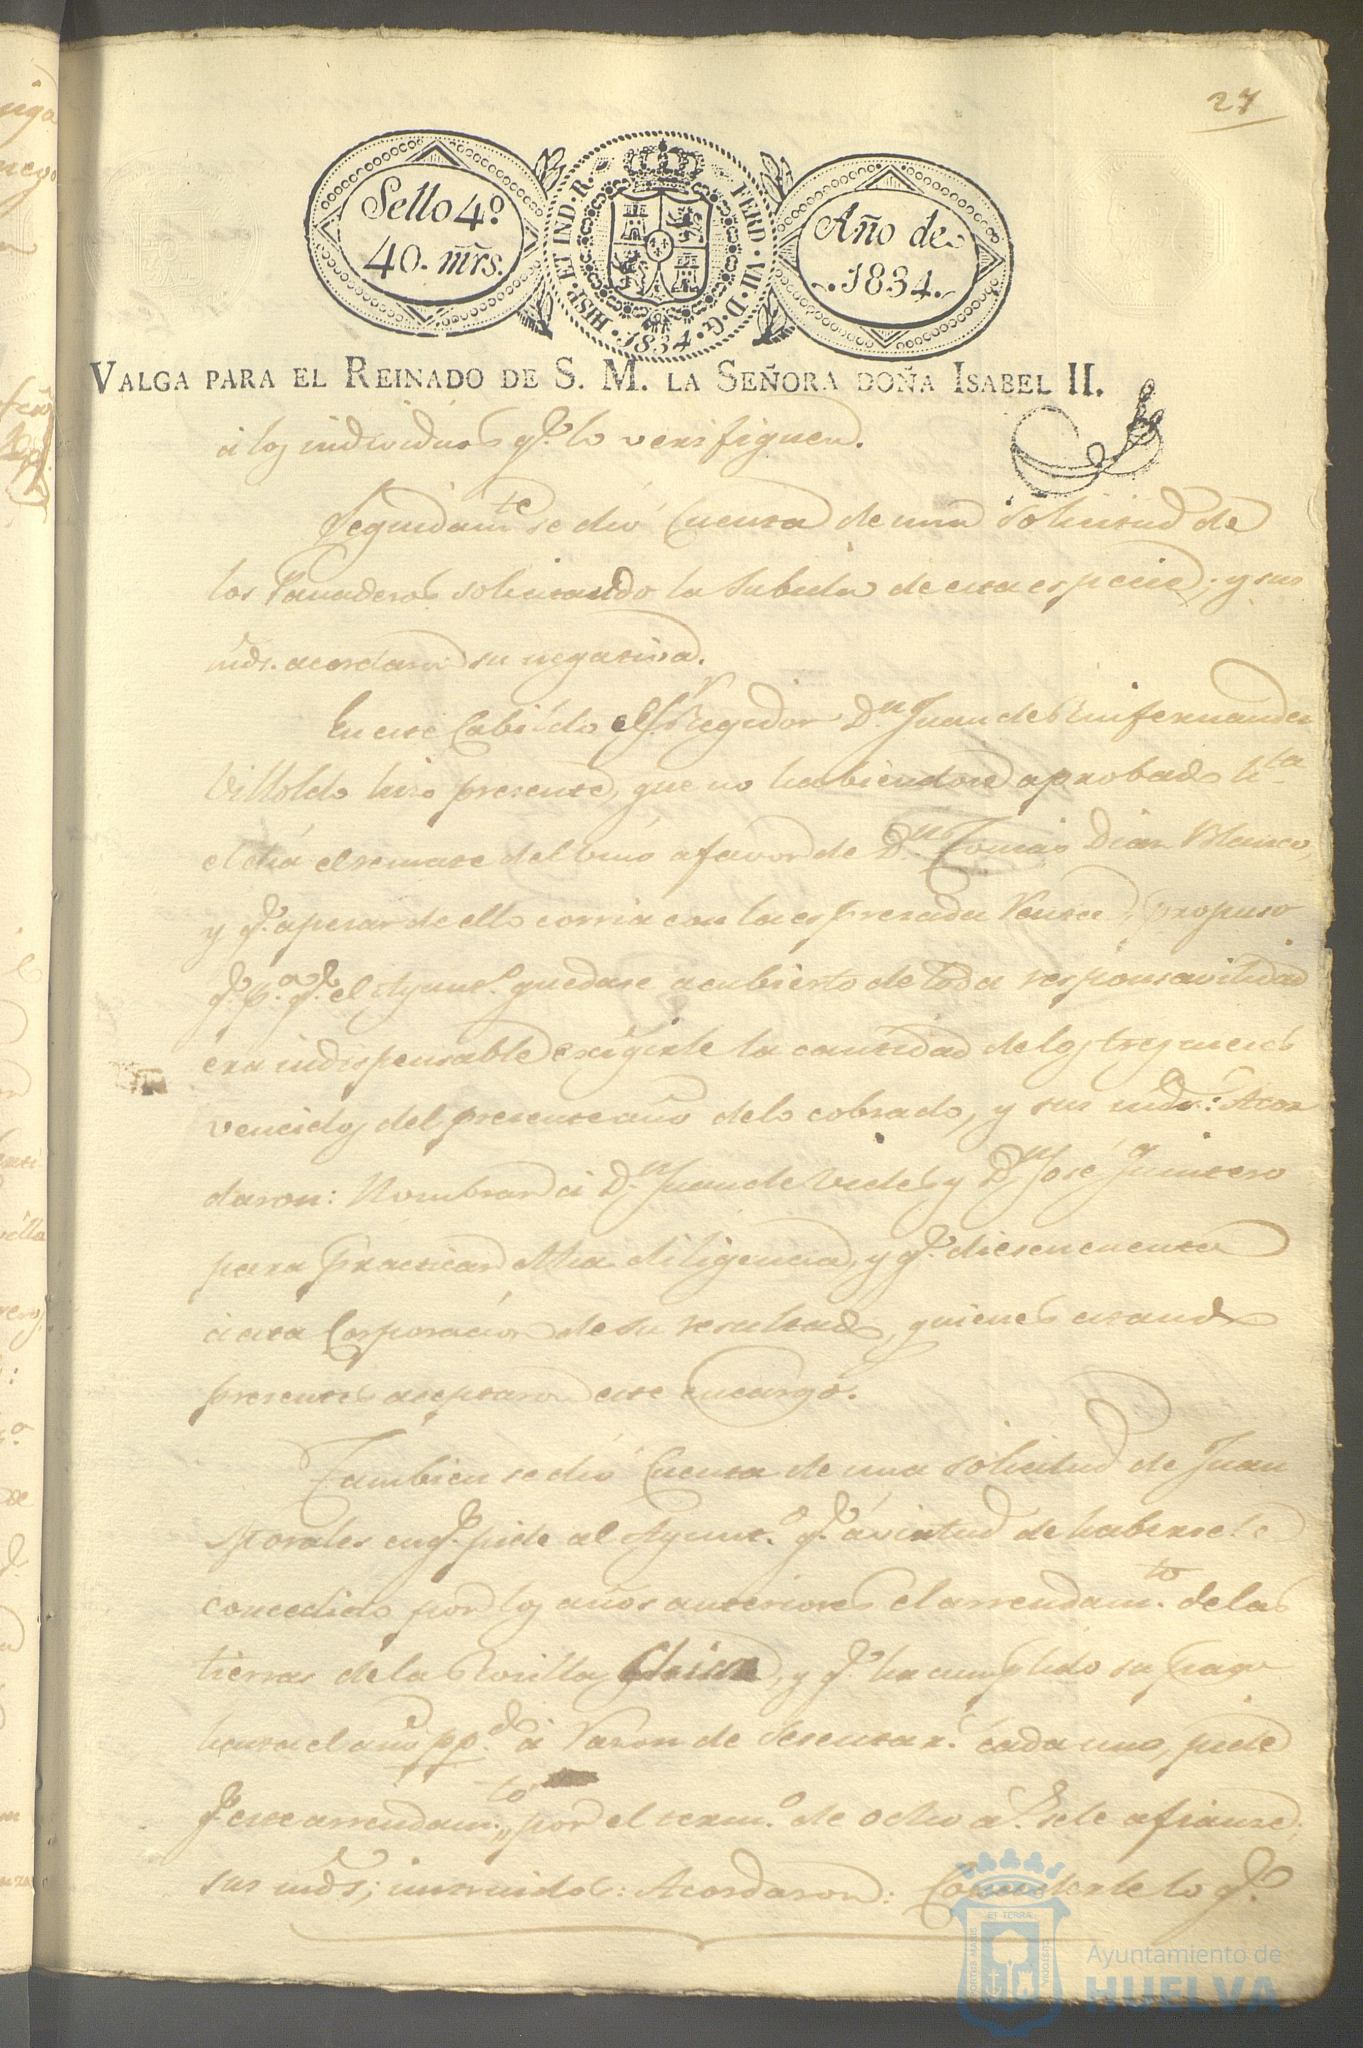 27
Sello 4º
40. mrs.
HISP. ET IND. R. FERD. VII. D. G. 1834.
Año de
1834.
VALGA PARA EL REINADO DE S. M. LA SEÑORA DOÑA ISABEL II.
á los individuos q.e lo verifiquen.
Seguidam.te se dió Cuenta de una solicitud de
los Panaderos solicitando la subida de esta especie; y sus
mds. acordaron su negativa.
En este Cabildo el S.r Regidor D.n Juan de
Villoldo hizo presente, que no habiendose aprobado h.ta
el día el remate del vino a favor de D.n Tomás Diaz Blanco,
y q.e apesar de ello corria con la espresada Venta, propuso
q.e p.a q.e el Ayunt.o quedase a cubierto de toda responsavilidad
era indispensable exigirle la cantidad de los tres meses
vencidos del presente año de lo cobrado, y sus mds.: Acor
daron: Nombrar á D.n Juan de Vides y D.n José Quintero
para practicar dha diligencia, y q.e diesen cuenta
á esta Corporacion de su resultado, quienes estando
presentes aceptaron este encargo.
Tambien se dió Cuenta de una solicitud de Juan
Morales en q.e pide al Ayunt.o q.e á virtud de habersele
concedido por los años anteriores el arrendam.to de las
tierras de la, y q.e ha cumplido su pago
hasta el año pp.do á razon de sesenta r.s cada uno, pide
q.e este arrendam.to por el term.o de ocho a.s se le afianze;
sus mds; instruidos: Acordaron: Concederle lo q.e
PORTUS MARIS ET TERRAE CUSTODIA
Ayuntamiento de
HUELVA